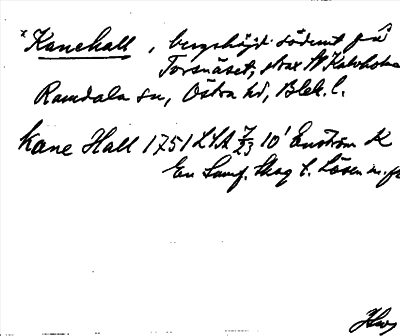 x Kanehall, bergshöjd söderut på
Torsnäset, strax N Kalvholmen
Ramdala sn, Östra hd, Blek. l.
Kane Hall 1751 LSA 10' Enström K
En Samf. Skog t. Lösen m. fl.